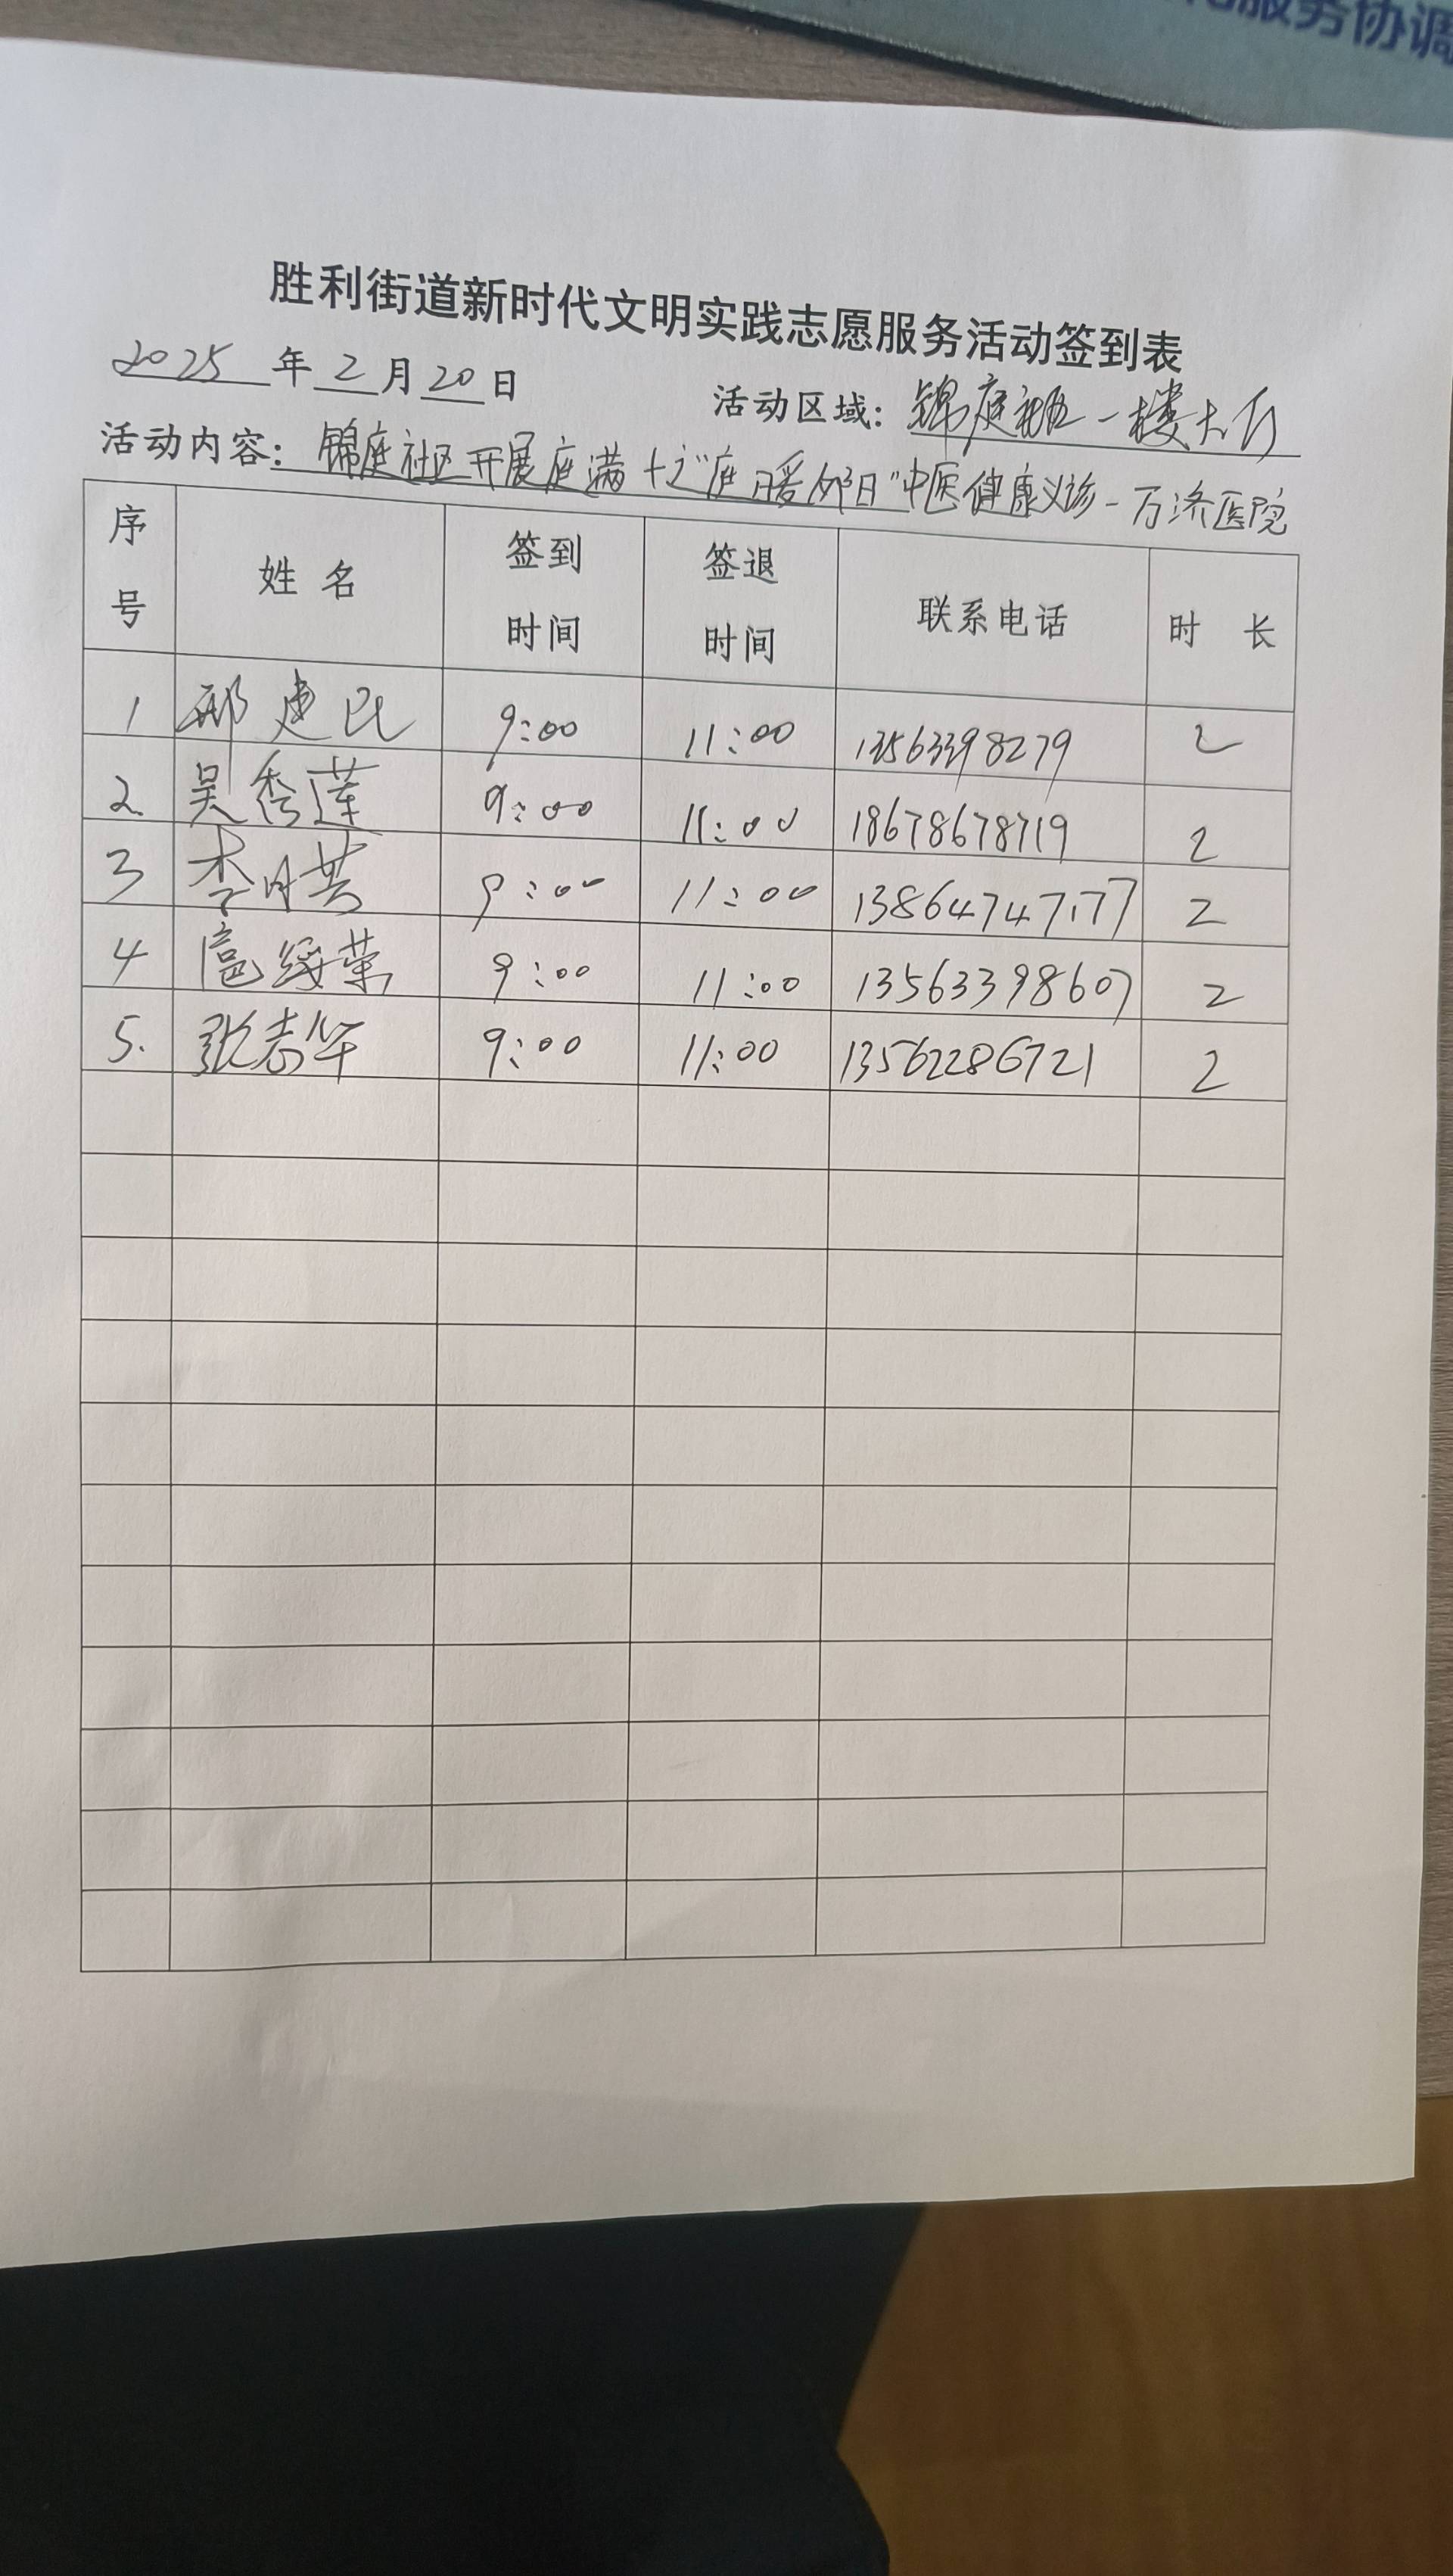 服务协调
胜利街道新时代文明实践志愿服务活动签到表
2025年2月20日 活动区域：锦庭社区一楼大厅
活动内容：锦庭社区开展庭满十之"庭暖邻日"中医健康义诊-万济医院
序号 姓名 签到时间 签退时间 联系电话 时长
1 邢建民 9:00 11:00 13563398279 2
2. 吴秀莲 9:00 11:00 18678678719 2
3 李月芸 9:00 11:00 13864747177 2
4 扈绥荣 9:00 11:00 13563398607 2
5. 张志华 9:00 11:00 13562286721 2